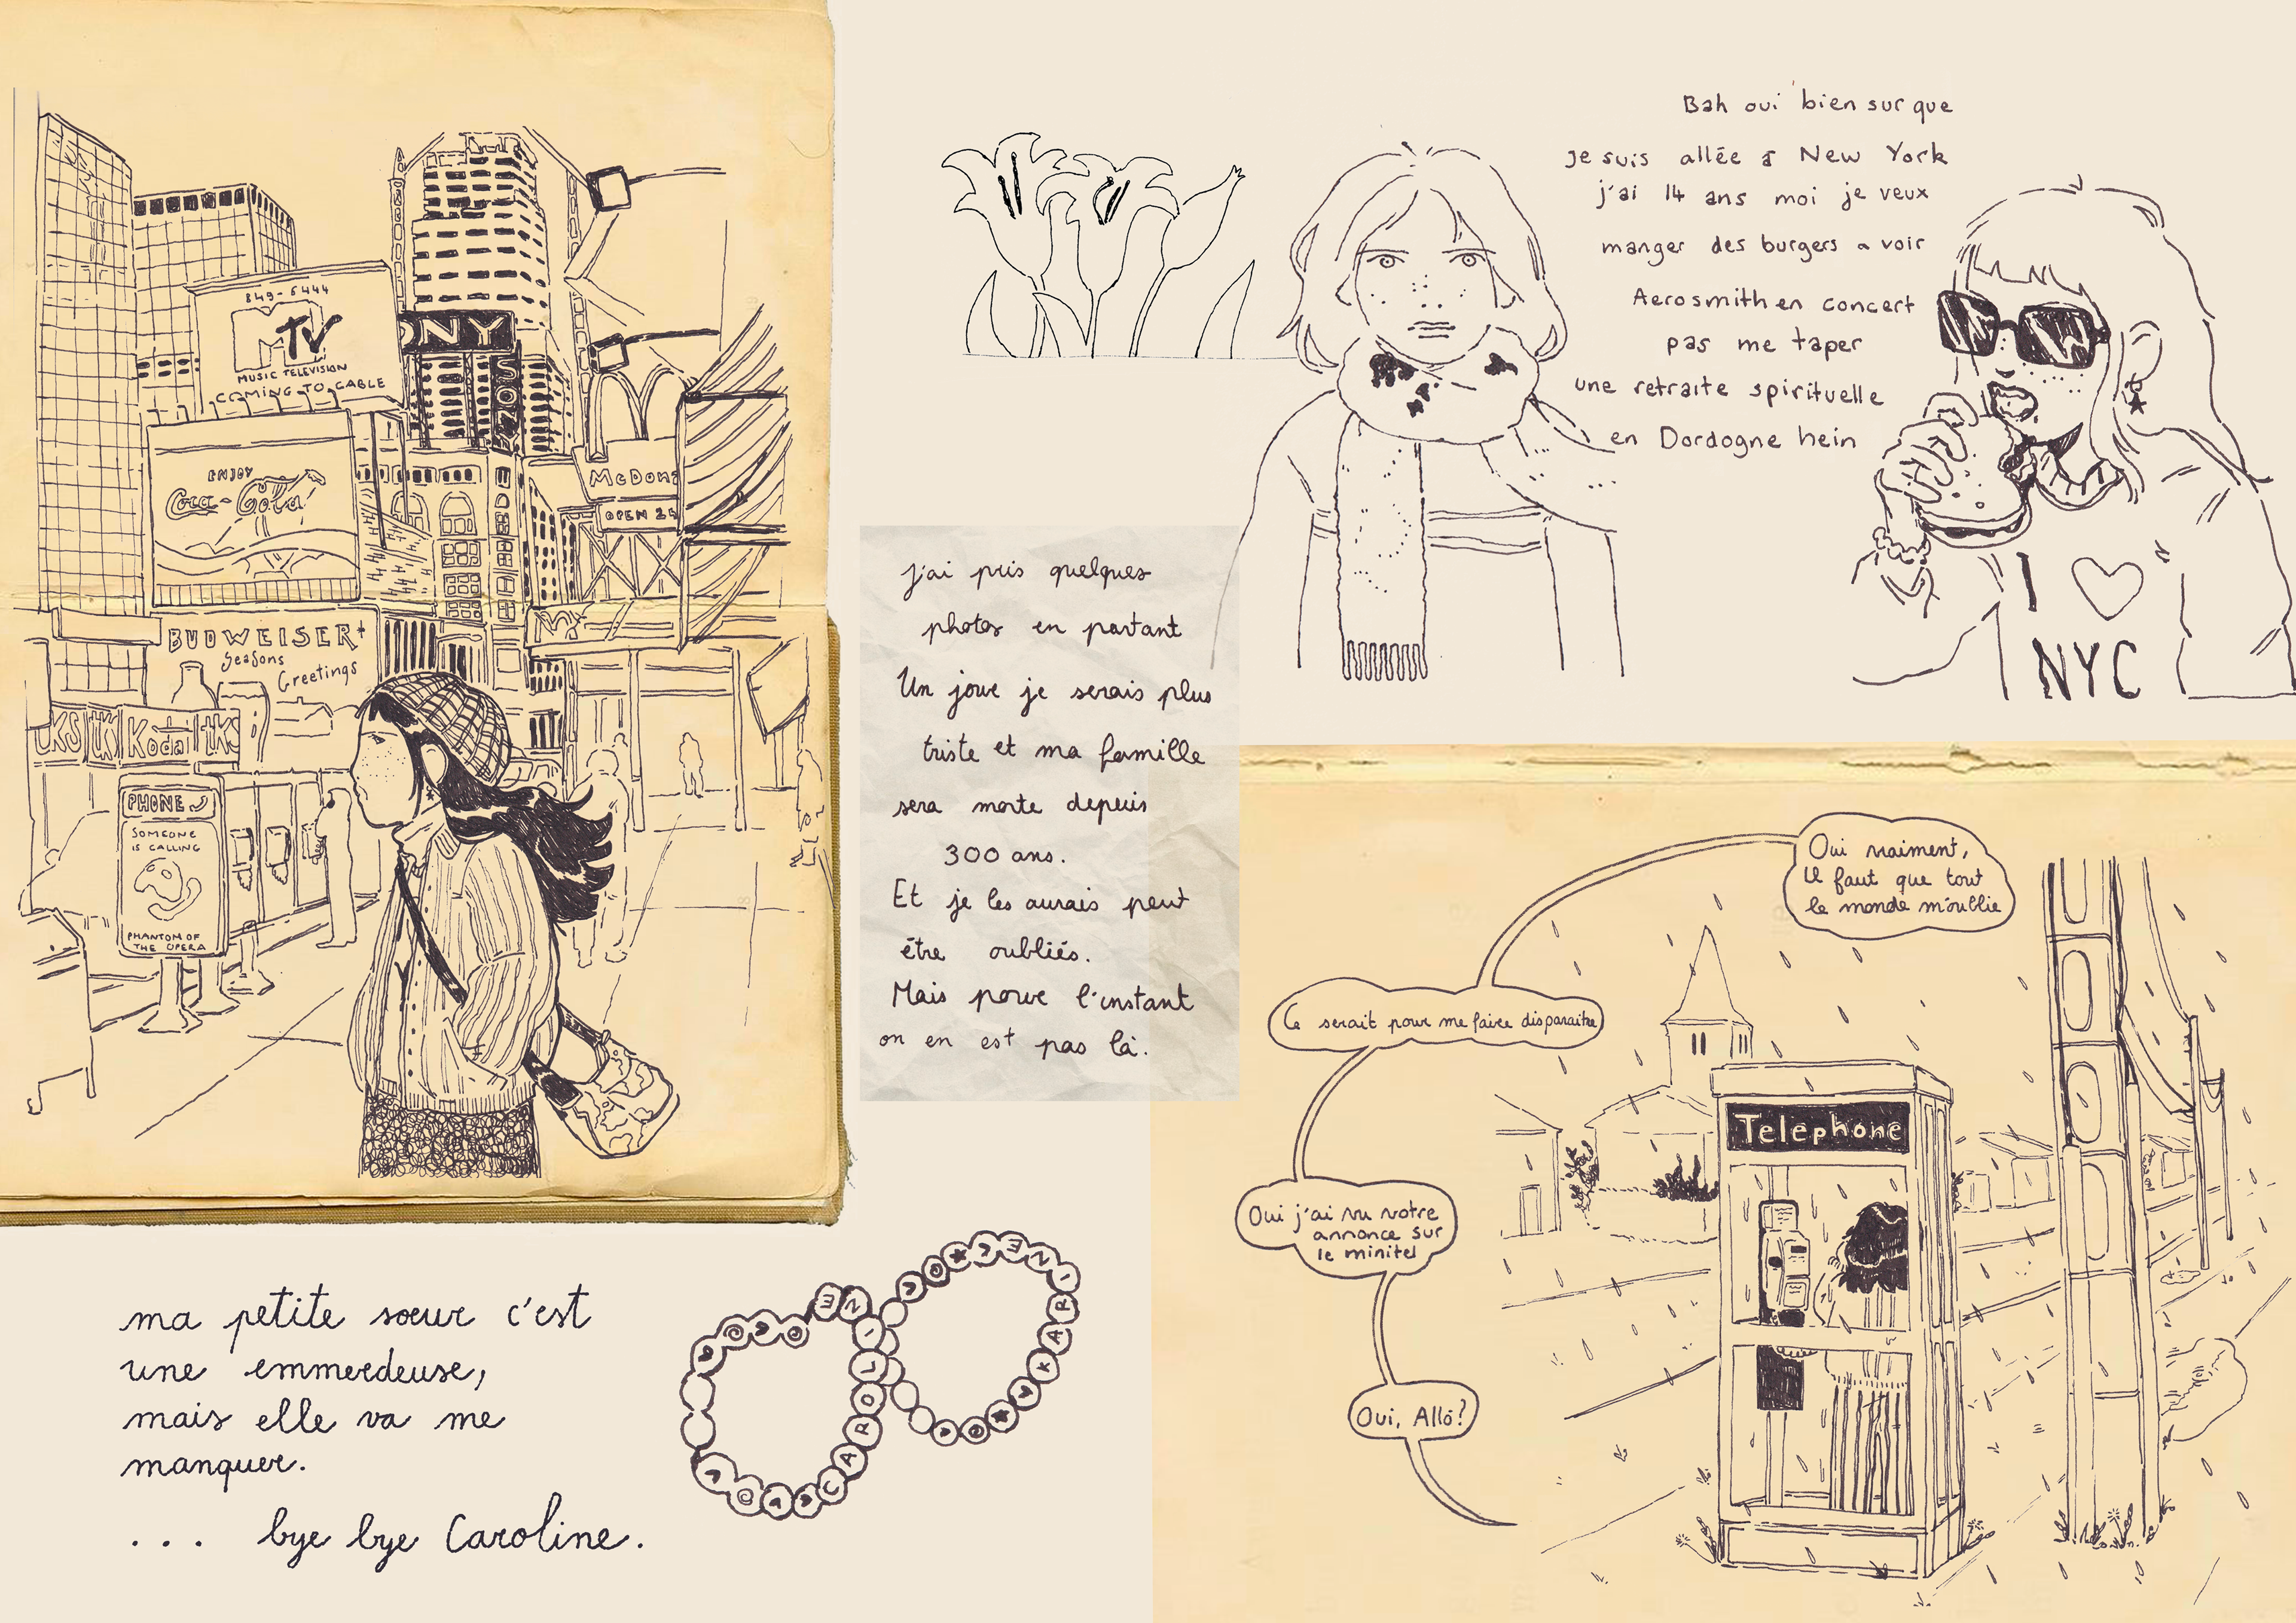 849-5444
MTV
MUSIC TELEVISION
COMING TO CABLE
ONY
SONY
ENJOY
Coca-Cola
McDona
OPEN 24
BUDWEISER
Seasons
Greetings
tKS tK Kodal tKS
PHONE
SOMEONE
IS CALLING
PHANTOM OF
THE OPERA
Bah oui bien sur que
je suis allée à New York
j'ai 14 ans moi je veux
manger des burgers a voir
Aerosmith en concert
pas me taper
une retraite spirituelle
en Dordogne hein
I ♡
NYC
j'ai pris quelques
photos en partant
Un jour je serais plus
triste et ma famille
sera morte depuis
300 ans.
Et je les aurais peut
être oubliés.
Mais pour l'instant
on en est pas là.
Oui vraiment,
il faut que tout
le monde m'oublie
Ce serait pour me faire disparaitre
Oui j'ai vu votre
annonce sur
le minitel
Oui, Allô?
Téléphone
ma petite soeur c'est
une emmerdeuse,
mais elle va me
manquer.
... bye bye Caroline.
CAROLINE
KARINE